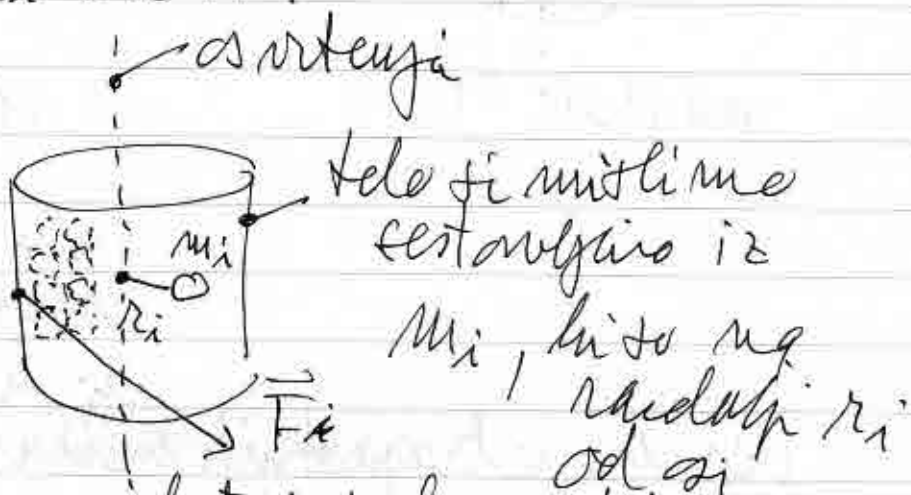 os vrtenja
telo si mislimo
sestavljeno iz
m_i
m_i, ki so na
r_i
razdalji r_i
F⃗_i
od osi